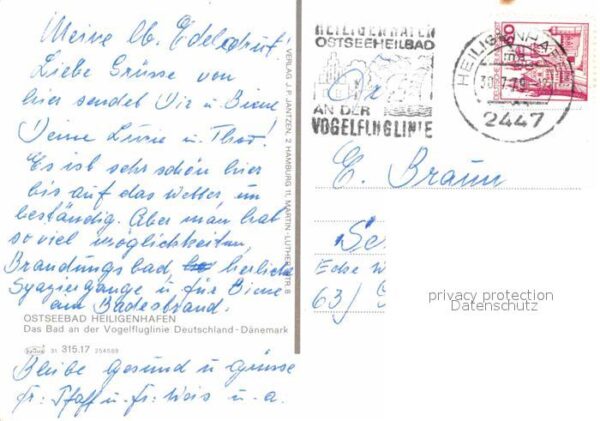 Meine lb. Edeltraut!
Liebe Grüsse von
hier sendet Dir u. Biene
Deine u.
Es ist sehr schön hier
bis auf das Wetter, un
beständig. Aber man hat
so viel möglichkeiten,
Brandungsbad, herliche
Spaziergänge u. für Biene
am Badestrand.
OSTSEEBAD HEILIGENHAFEN
Das Bad an der Vogelfluglinie Deutschland - Dänemark
31 315.17 254589
Bleibe Gesund u. grüsse
fr. Pfaff u. fr. u. a.
VERLAG J. P. JANTZEN, 2 HAMBURG 11, MARTIN-LUTHER-STR. 8
HEILIGENHAFEN
OSTSEEHEILBAD
AN DER
VOGELFLUGLINIE
HEILIGENHAFEN
2447
E. Braun
Se
Ecke W
63/
privacy protection
Datenschutz